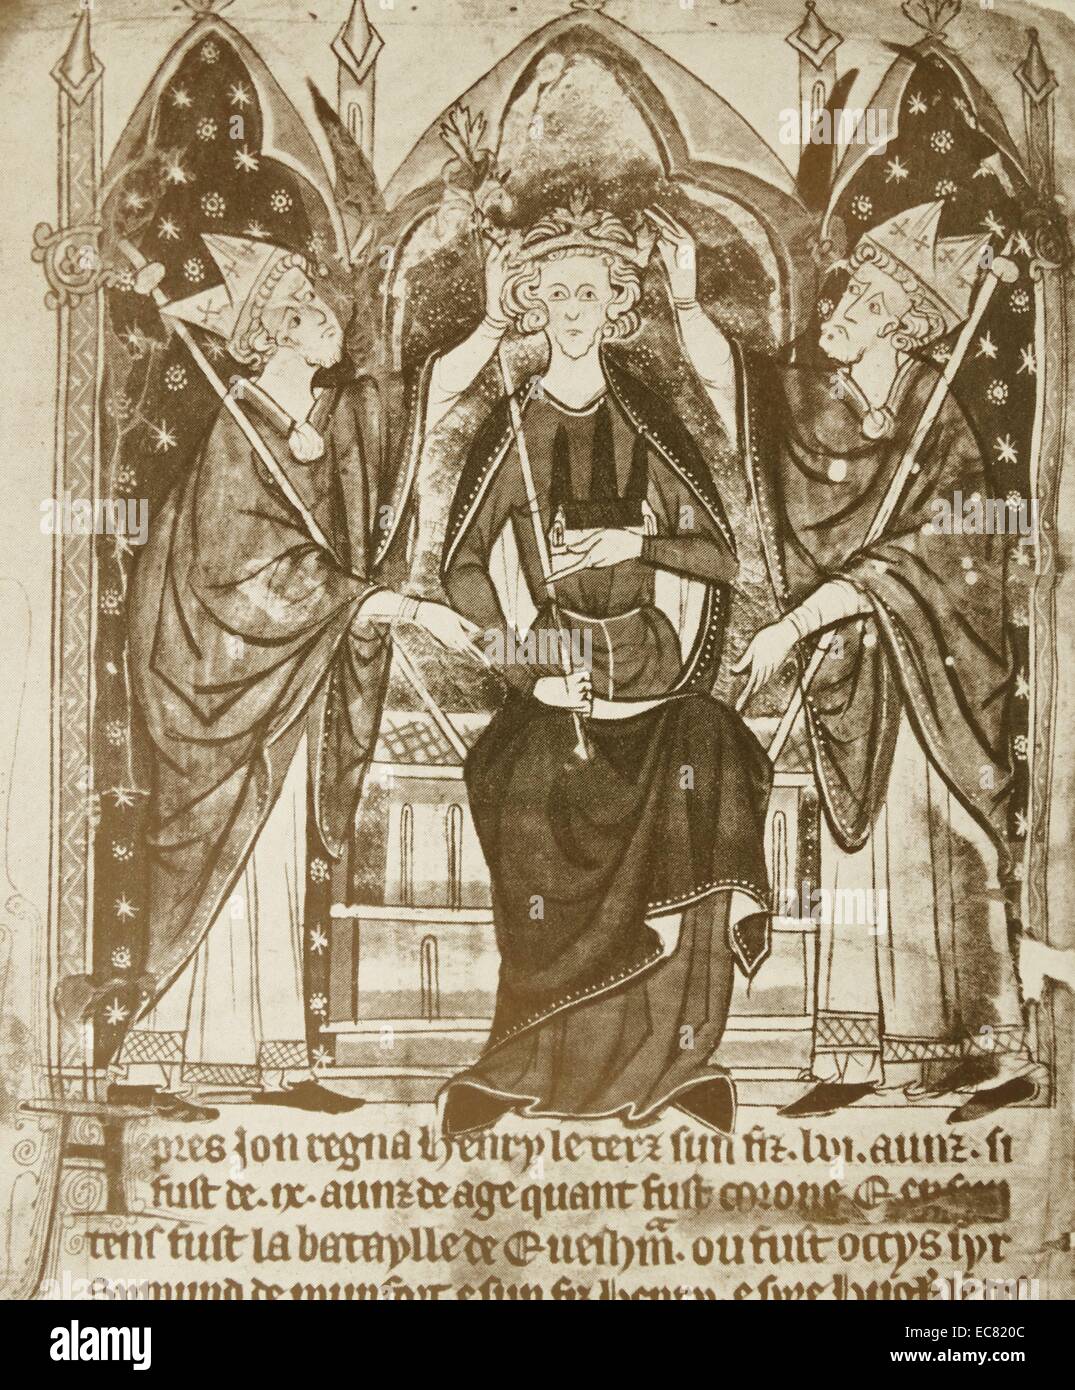 pres Jon regna Henry le terz sun fiz .lvi. aunz. si
fust de .ix. aunz de age quant fust corone E en sun
tens fust la bataylle de Evesham. ou fust occys syr
de munfort e sun fiz Henry. e syre
alamy
Image ID: EC820C
www.alamy.com